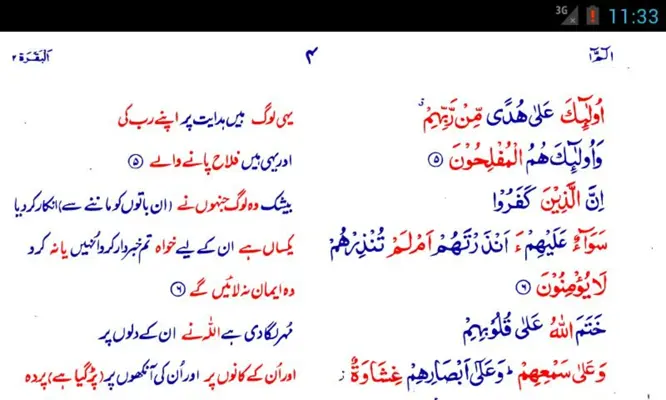 3G 11:33
الٓمّٓا ۴ اَلبَقَرَة ۲
اُولٰٓئِكَ عَلٰى هُدًى مِّنْ رَّبِّهِمْ ۗ یہی لوگ ہیں ہدایت پر اپنے رب کی
وَاُولٰٓئِكَ هُمُ الْمُفْلِحُوْنَ ۵ اور یہی ہیں فلاح پانے والے ۵
اِنَّ الَّذِيْنَ كَفَرُوْا بیشک وہ لوگ جنہوں نے (ان باتوں کو ماننے سے) انکار کر دیا
سَوَآءٌ عَلَيْهِمْ ءَاَنْذَرْتَهُمْ اَمْ لَمْ تُنْذِرْهُمْ یکساں ہے ان کے لیے خواہ تم خبردار کرو اُنہیں یا نہ کرو
لَا يُؤْمِنُوْنَ ۶ وہ ایمان نہ لائیں گے ۶
خَتَمَ اللّٰهُ عَلٰى قُلُوْبِهِمْ مُہر لگا دی ہے اللہ نے ان کے دلوں پر
وَعَلٰى سَمْعِهِمْ ؕ وَعَلٰٓى اَبْصَارِهِمْ غِشَاوَةٌ ز اور اُن کے کانوں پر اور اُن کی آنکھوں پر (پڑ گیا ہے) پردہ